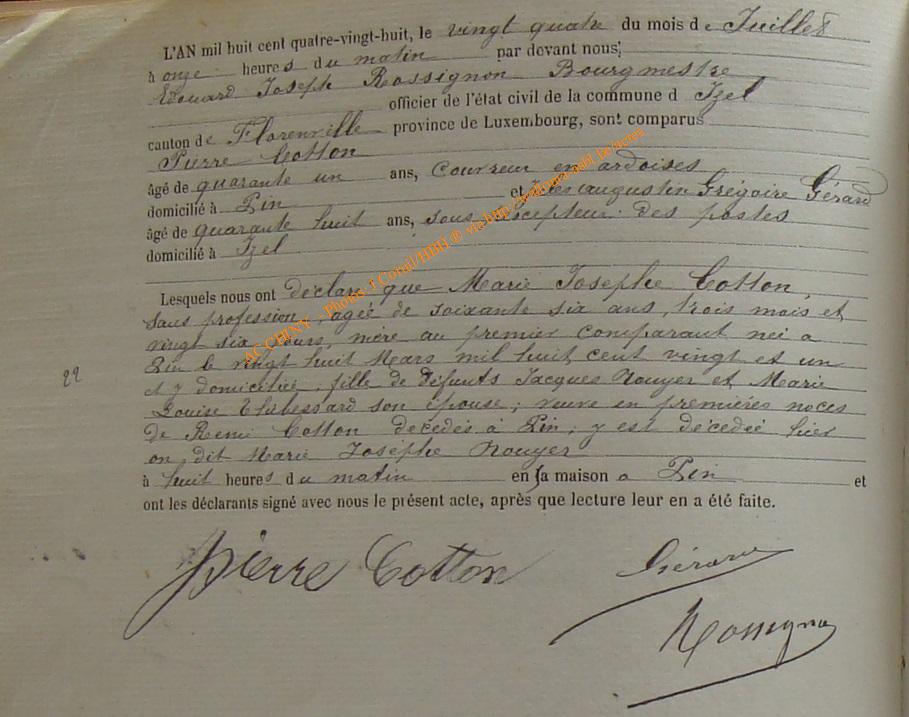 L'AN mil huit cent quatre-vingt-huit, le vingt quatre du mois de Juillet
à onze heures du matin par devant nous,
Edouard Joseph Rossignon Bourgmestre
officier de l'état civil de la commune d Izel
canton de Florenville province de Luxembourg, sont comparus
Pierre Cotton
âgé de quarante un ans, couvreur en ardoises
domicilié à Pin et Jules Augustin Grégoire Gérard
âgé de quarante huit ans, sous percepteur des postes
domicilié à Izel
Lesquels nous ont déclaré que Marie Josephe Cotton,
sans profession, agée de soixante six ans, trois mois et
vingt six jours, mère au premier comparant née a
Pin le vingt huit Mars mil huit cent vingt et un
et y domiciliée, fille de défunts Jacques Nouyer et Marie
Louise Thibessard son épouse; veuve en premières noces
de Remi Cotton décédés à Pin, y est décédée hier
on dit Marie Josèphe Nouyer
à huit heures du matin en sa maison a Pin et
ont les déclarants signé avec nous le présent acte, après que lecture leur en a été faite.
22
Pierre Cotton
Gérard
Rossignon
AC CHINY - Photos J Corail/HBH ® via http://